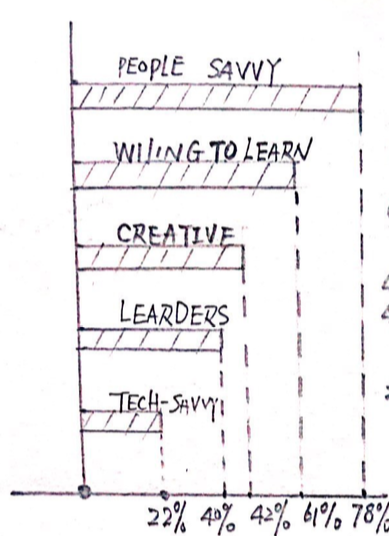 PEOPLE SAVVY
WIIING TO LEARN
CREATIVE
LEARDERS
TECH-SAVVY
22% 40% 42% 61% 78%